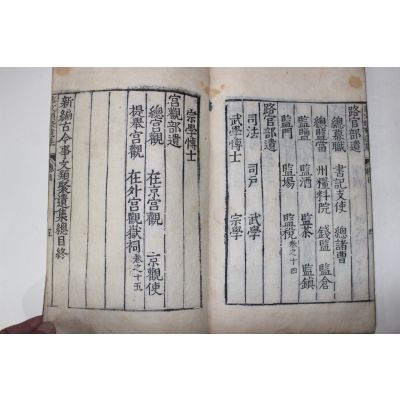 路官部遺
總幕職 書記支使 總諸曹
總監當 州糧料院 錢監 監倉
監鹽 監酒 監茶 監鎮
監門 監場 監稅 卷之十四
路官部遺
司法 司戶 武學
武學博士 宗學
宗學博士
宮觀部遺
總宮觀 在京宮觀 京觀使
提舉宮觀 在外宮觀嶽祠 卷之十五
新編古今事文類聚遺集總目終